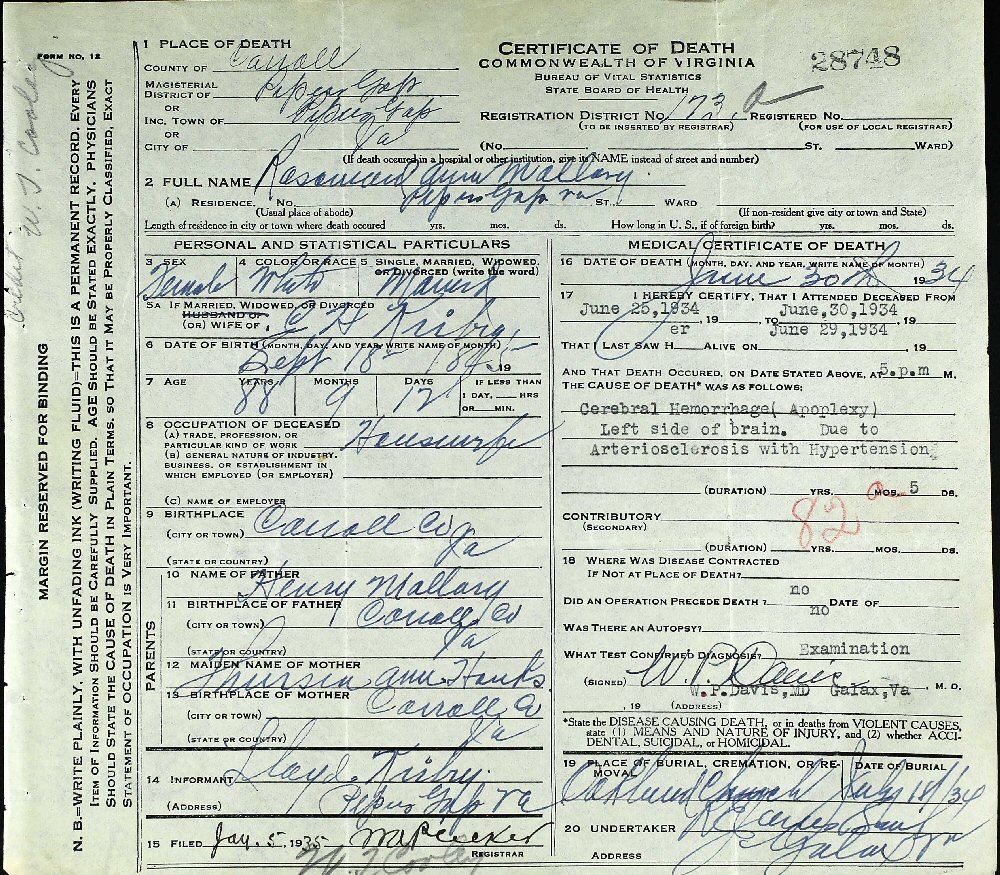 FORM NO. 12
MARGIN RESERVED FOR BINDING
N. B.=WRITE PLAINLY, WITH UNFADING INK (WRITING FLUID)=THIS IS A PERMANENT RECORD. EVERY
ITEM OF INFORMATION SHOULD BE CAREFULLY SUPPLIED. AGE SHOULD BE STATED EXACTLY. PHYSICIANS
SHOULD STATE THE CAUSE OF DEATH IN PLAIN TERMS, SO THAT IT MAY BE PROPERLY CLASSIFIED. EXACT
STATEMENT OF OCCUPATION IS VERY IMPORTANT.
W. T. Cooley
CERTIFICATE OF DEATH
COMMONWEALTH OF VIRGINIA
BUREAU OF VITAL STATISTICS
STATE BOARD OF HEALTH
28748
1 PLACE OF DEATH
COUNTY OF Carroll
MAGISTERIAL
DISTRICT OF Pipers Gap
OR
INC. TOWN OF Pipers Gap
OR
CITY OF Va
REGISTRATION DISTRICT NO. 173 a REGISTERED NO.
(TO BE INSERTED BY REGISTRAR) (FOR USE OF LOCAL REGISTRAR)
(NO. ST. WARD)
(If death occured in a hospital or other institution, give its NAME instead of street and number)
2 FULL NAME Ann Mallory
(A) RESIDENCE, NO. Pipers Gap Va ST., WARD
(Usual place of abode) (If non-resident give city or town and State)
Length of residence in city or town where death occured yrs. mos. ds. How long in U. S., if of foreign birth? yrs. mos. ds.
PERSONAL AND STATISTICAL PARTICULARS
3 SEX 4 COLOR OR RACE 5 SINGLE, MARRIED, WIDOWED, OR DIVORCED (write the word)
Female White Married
5A IF MARRIED, WIDOWED, OR DIVORCED
HUSBAND OF
(OR) WIFE OF C H Kirby
6 DATE OF BIRTH (MONTH, DAY, AND YEAR, WRITE NAME OF MONTH)
Sept 18 1845 19
7 AGE YEARS MONTHS DAYS IF LESS THAN
1 DAY, HRS
OR MIN.
88 9 12
8 OCCUPATION OF DECEASED
(A) TRADE, PROFESSION, OR
PARTICULAR KIND OF WORK Housewife
(B) GENERAL NATURE OF INDUSTRY,
BUSINESS, OR ESTABLISHMENT IN
WHICH EMPLOYED (OR EMPLOYER)
(C) NAME OF EMPLOYER
9 BIRTHPLACE Carroll Co
(CITY OR TOWN) Va
(STATE OR COUNTRY)
PARENTS
10 NAME OF FATHER
Henry Mallory
11 BIRTHPLACE OF FATHER
(CITY OR TOWN) Carroll Co
Va
(STATE OR COUNTRY)
12 MAIDEN NAME OF MOTHER
Thursia Ann Hanks
13 BIRTHPLACE OF MOTHER Carroll Co
(CITY OR TOWN)
Va
(STATE OR COUNTRY)
14 INFORMANT Lloyd Kirby
(ADDRESS) Pipers Gap Va
15 FILED Jan. 5, 1935
REGISTRAR
W. T. Cooley
MEDICAL CERTIFICATE OF DEATH
16 DATE OF DEATH (MONTH, DAY, AND YEAR, WRITE NAME OF MONTH)
June 30th 1934
17 I HEREBY CERTIFY, THAT I ATTENDED DECEASED FROM
June 25,1934 , 19 TO June,30,1934 , 19
THAT I LAST SAW H er ALIVE ON June 29,1934 , 19
AND THAT DEATH OCCURED, ON DATE STATED ABOVE, AT 5.p.m M.
THE CAUSE OF DEATH* WAS AS FOLLOWS:
Cerebral Hemorrhage( Apoplexy)
Left side of brain. Due to
Arteriosclerosis with Hypertension,
(DURATION) YRS. MOS. 5 DS.
82 a
CONTRIBUTORY
(SECONDARY)
(DURATION) YRS. MOS. DS.
18 WHERE WAS DISEASE CONTRACTED
IF NOT AT PLACE OF DEATH?
DID AN OPERATION PRECEDE DEATH? no DATE OF
WAS THERE AN AUTOPSY? no
WHAT TEST CONFIRMED DIAGNOSIS? Examination
(SIGNED) W. P. Davis M. D.
W.P.Davis,MD Galax,Va
, 19 (ADDRESS)
*State the DISEASE CAUSING DEATH, or in deaths from VIOLENT CAUSES,
state (1) MEANS AND NATURE OF INJURY, and (2) whether ACCI-
DENTAL, SUICIDAL, or HOMICIDAL.
19 PLACE OF BURIAL, CREMATION, OR RE-MOVAL DATE OF BURIAL
Oakland Church July 1st/34
20 UNDERTAKER
ADDRESS Galax Va